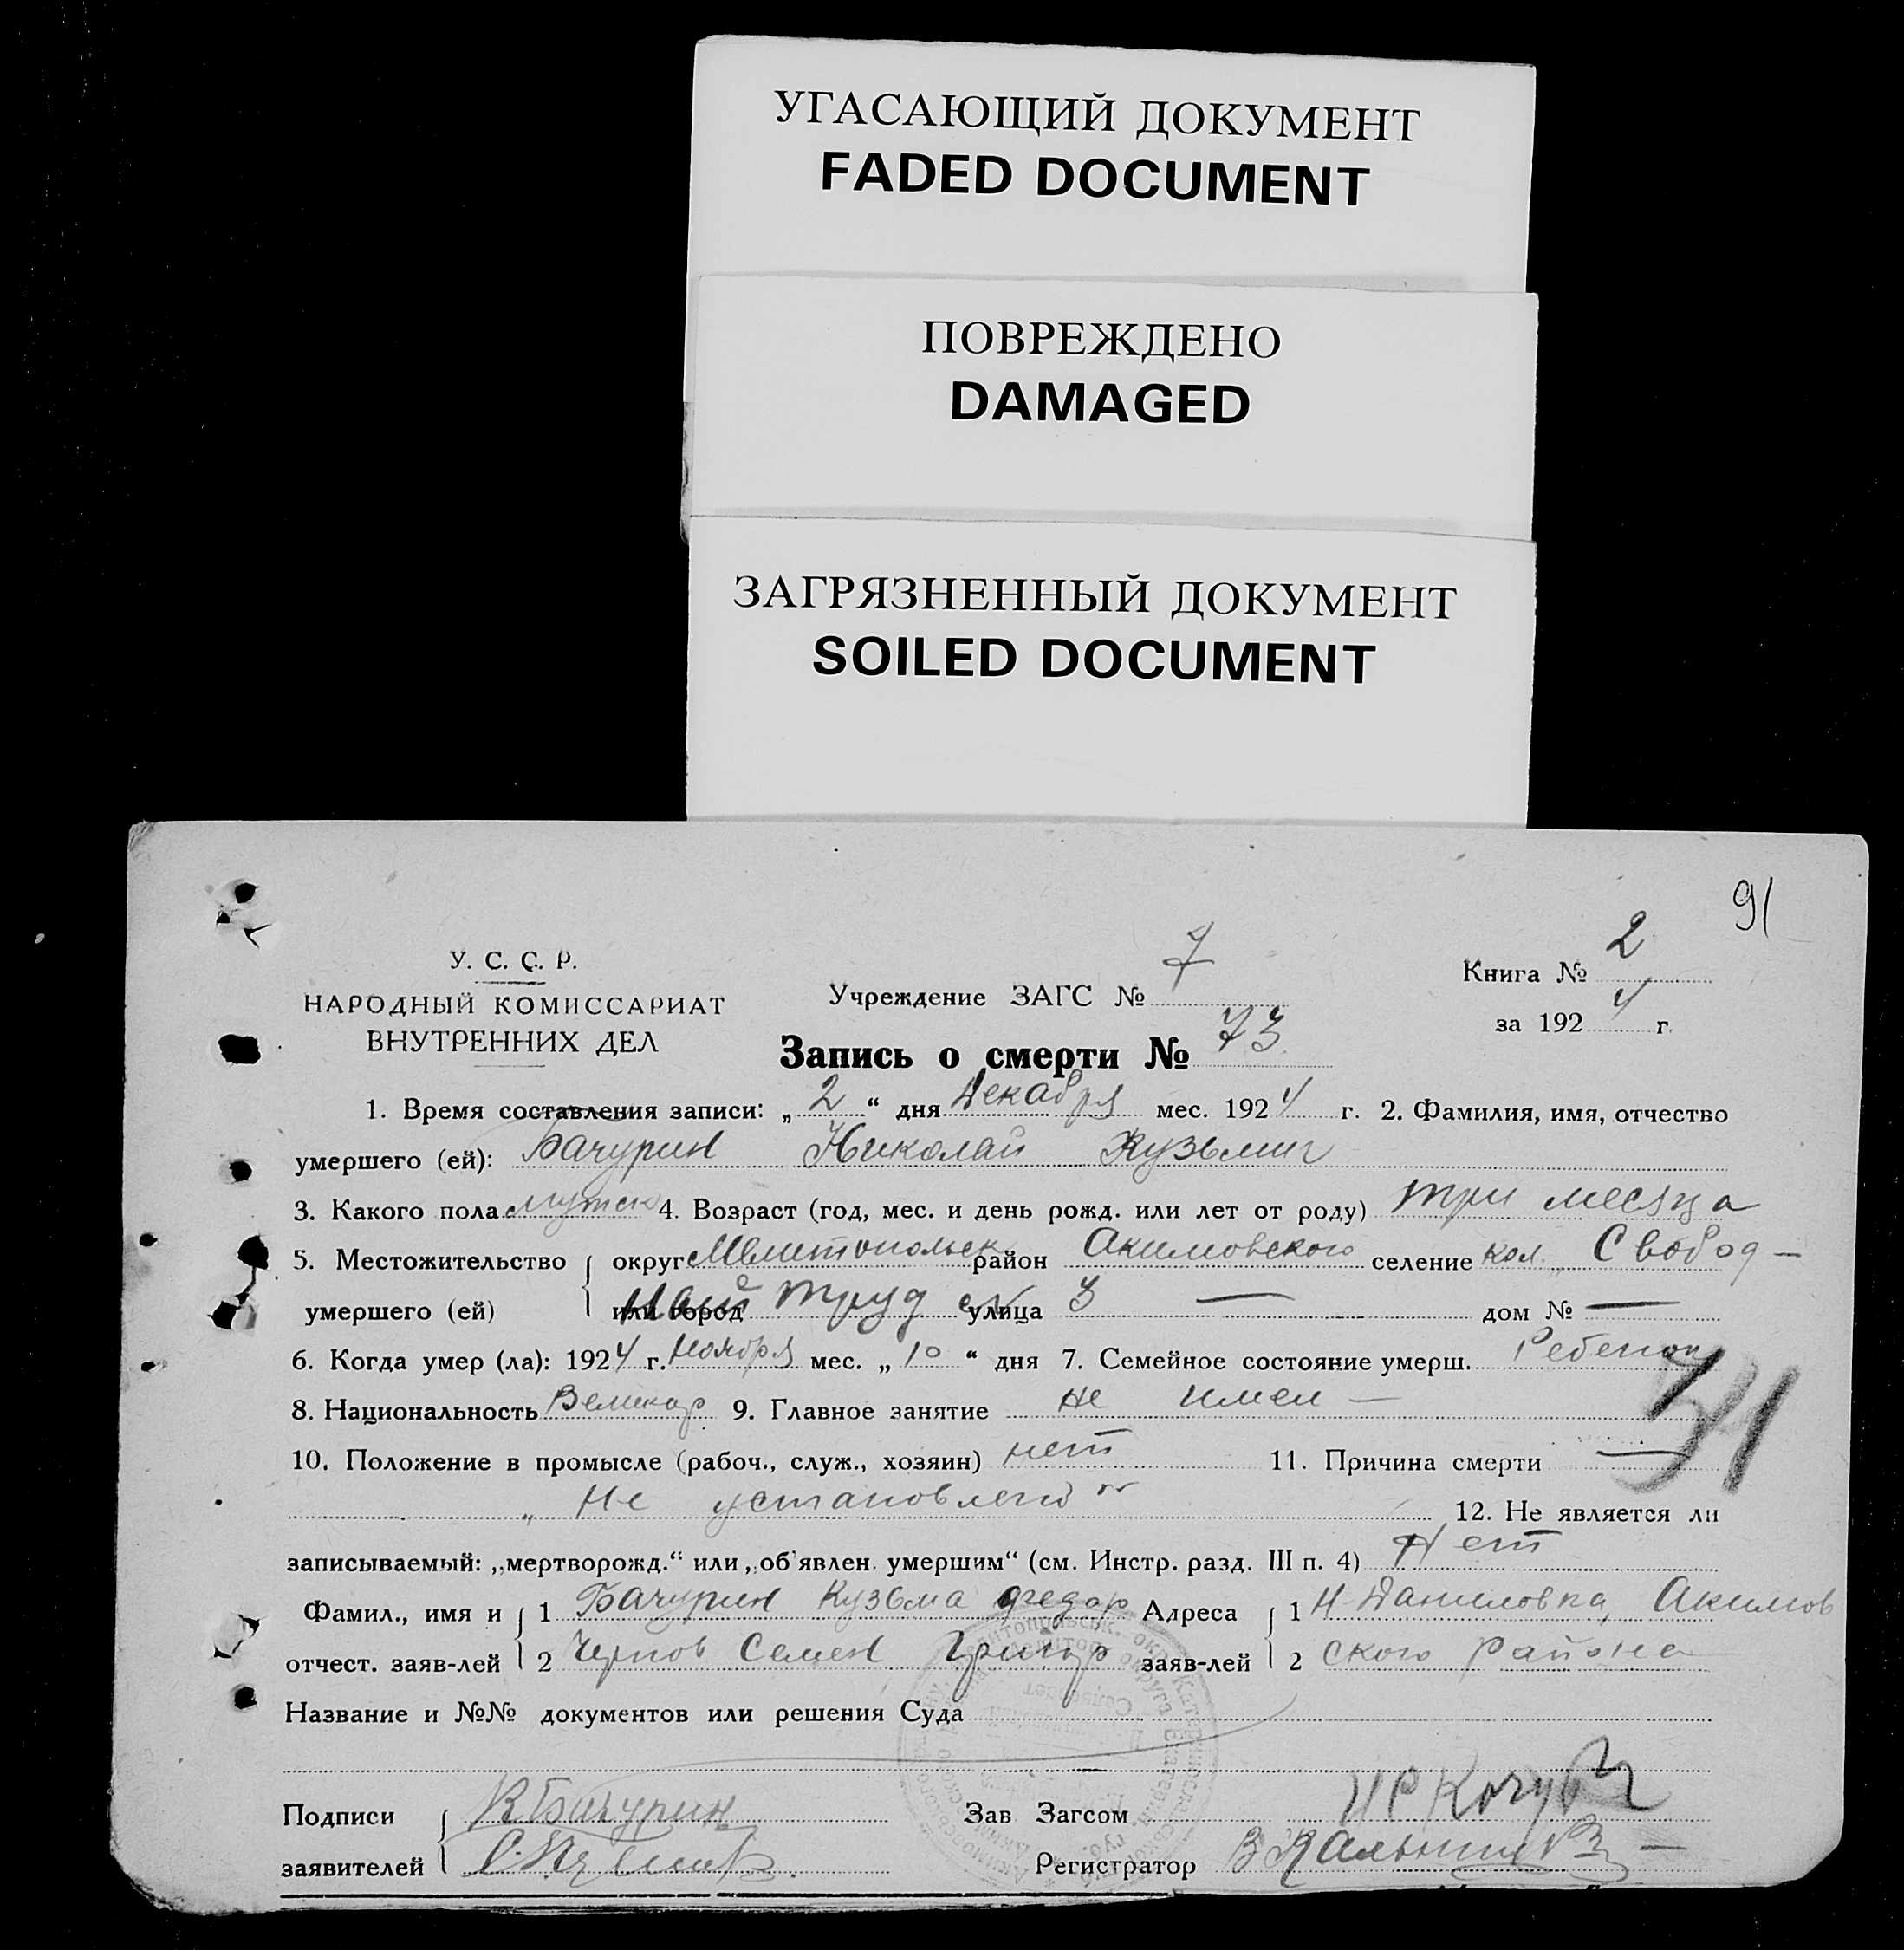 УГАСАЮЩИЙ ДОКУМЕНТ
FADED DOCUMENT
ПОВРЕЖДЕНО
DAMAGED
ЗАГРЯЗНЕННЫЙ ДОКУМЕНТ
SOILED DOCUMENT
91
У. С. С. Р.
НАРОДНЫЙ КОМИССАРИАТ
ВНУТРЕННИХ ДЕЛ
Учреждение ЗАГС № 7
Книга № 2
за 1924 г.
Запись о смерти № 73
1. Время составления записи: „2“ дня Декабря мес. 1924 г. 2. Фамилия, имя, отчество
умершего (ей): Бачурин Николай Кузьмич
3. Какого пола мужск 4. Возраст (год, мес. и день рожд. или лет от роду) три месяца
5. Местожительство округ Мелитопольск район Акимовского селение кол. Свобод-
умершего (ей) или город ный труд улица дом № —
6. Когда умер (ла): 1924 г. Ноября мес. „10“ дня 7. Семейное состояние умерш. Ребенок
8. Национальность Великор 9. Главное занятие не имел —
10. Положение в промысле (рабоч., служ., хозяин) нет 11. Причина смерти —
„Не установлено“ 12. Не является ли
записываемый: „мертворожд.“ или „об'явлен умершим“ (см. Инстр. разд. III п. 4) Нет
Фамил., имя и 1 Бачурин Кузьма Федор Адреса 1 Н-Даниловка, Акимов
отчест. заяв-лей 2 Чернов Семен Григор заяв-лей 2 ского района
Название и №№ документов или решения Суда
Подписи К Бачурин Зав Загсом
заявителей Регистратор